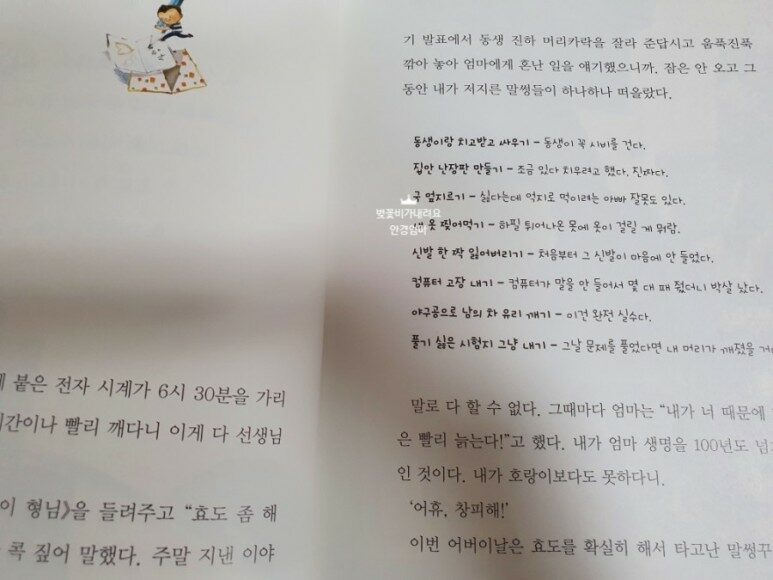 붙은 전자 시계가 6시 30분을 가리
빨리 깨다니 이게 다 선생님
형님》을 들려주고 “효도 좀 해
콕 짚어 말했다. 주말 지낸 이야
기 발표에서 동생 진하 머리카락을 잘라 준답시고 움푹진푹
깎아 놓아 엄마에게 혼난 일을 얘기했으니까. 잠은 안 오고 그
동안 내가 저지른 말썽들이 하나하나 떠올랐다.
동생이랑 치고받고 싸우기 – 동생이 꼭 시비를 건다.
집안 난장판 만들기 – 조금 있다 치우려고 했다. 진짜다.
국 엎지르기 – 싫다는데 억지로 먹이려는 아빠 잘못도 있다.
옷 찢어먹기 – 하필 튀어나온 못에 옷이 걸릴 게 뭐람.
신발 한 짝 잃어버리기 – 처음부터 그 신발이 마음에 안 들었다.
컴퓨터 고장 내기 – 컴퓨터가 말을 안 들어서 몇 대 패 줬더니 박살 났다.
야구공으로 남의 차 유리 깨기 – 이건 완전 실수다.
풀기 싫은 시험지 그냥 내기 – 그날 문제를 풀었다면 내 머리가 깨졌을
말로 다 할 수 없다. 그때마다 엄마는 “내가 너 때문에
은 빨리 늙는다!”고 했다. 내가 엄마 생명을 100년도
인 것이다. 내가 호랑이보다도 못하다니.
‘어휴, 창피해!’
이번 어버이날은 효도를 확실히 해서 타고난 말썽꾸
벚꽃비가내려요
안경엄마